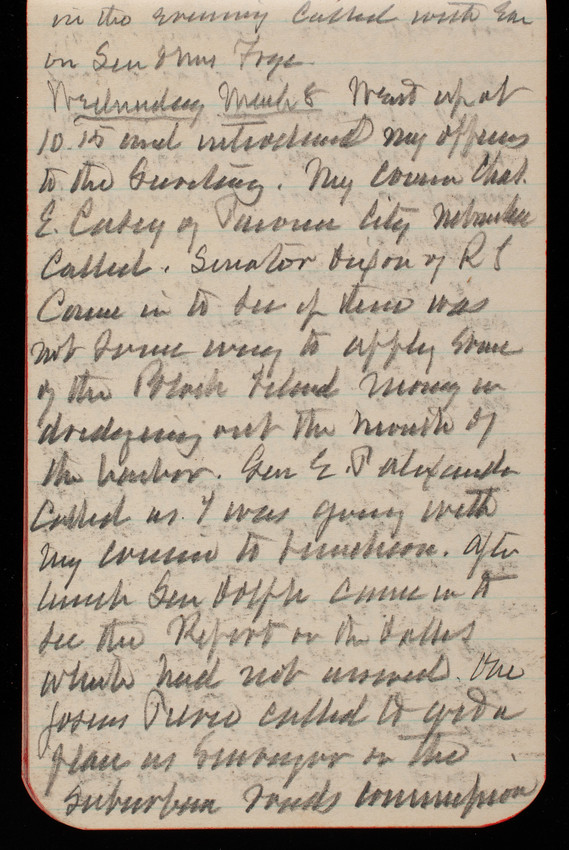 in the evening called with Em
on Gen & Mrs
Wednesday March 8 Went up at
10.15 and introduced my officers
to the Secretary. My cousin Chas.
E. Casey of Pawnee City Nebraska
called. Senator Dixon of R I
Came in to see if there was
not some way to apply some
of the Block Island money in
dredging out the mouth of
the harbor. Gen E. P Alexander
Called as I was going with
my cousin to luncheon. After
lunch Sen Dolph came in to
see the Report on the Dalles
which had not arrived. One
Pierce called to get a
place as Surveyor on the
Suburban roads commission